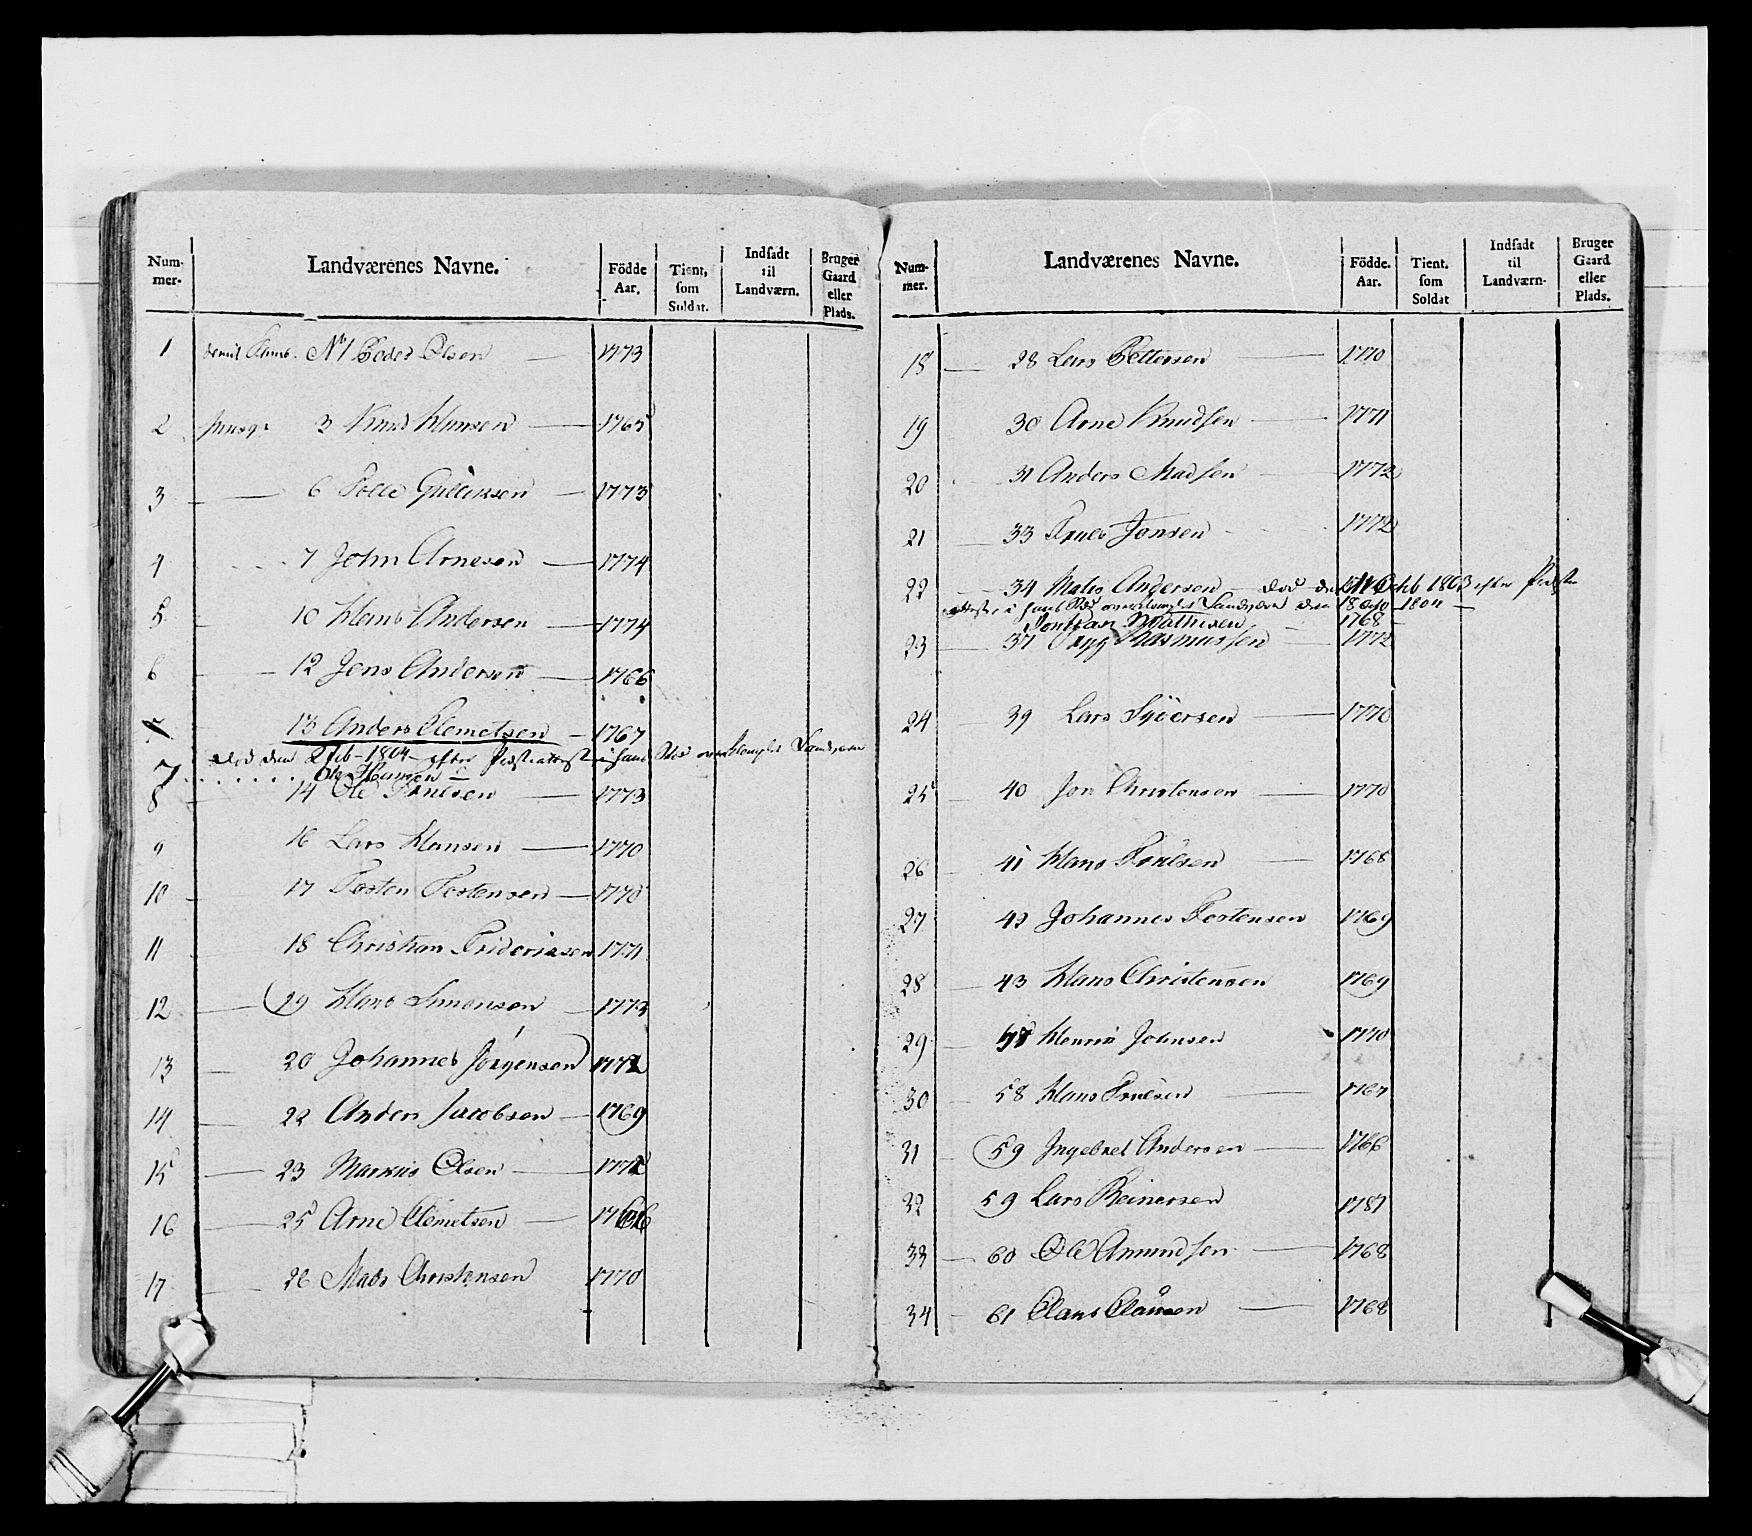 Num-mer.
Landværenes Navne.
Födde Aar.
Tient, som Soldat.
Indsadt til Landværn.
Bruger Gaard eller Plads.
1 No 1 Peder Olsen — 1773
2 3 Knud Hansen — 1765
3 — 6 Tolle Gulliksen — 1773
4 7 John Arnesen — 1774
5 10 Hans Andersen — 1774
6 — 12 Jens Andersen — 1766
7 13 Anders Clemetsen — 1767
Död den 2 Feb 1804 efter Præsteattest i hans Sted Landværn
7 Ole Hansen
8 14 Ole Poulsen — 1773
9 16 Lars Hansen — 1770
10 17 Tosten Tostensen — 1770
11 18 Christian Fridericsen 1771
12 — 19 Hans Simensen — 1773
13 20 Johannes Jörgensen 1772
14 — 22 Anders Jacobsen — 1769
15 — 23 Markus Olsen — 1772
16 — 25 Arne Clemetsen — 1766
17 — 26 Mads Christensen 1770
Num-mer.
Landværenes Navne.
Födde. Aar.
Tient. som Soldat
Indsadt til Landværn-
Bruger Gaard eller Plads.
18 — 28 Lars Pettersen — 1770
19 30 Arne Knudsen — 1771
20 31 Anders Madsen — 1772
21 — 33 Poul Jonsen 1772
22 — 34 Mats Andersen — död den Octb 1803 efter Præste
attest, i hans Sted Landværn den 18 1804 —
Mathisen — 1768
23 — 37 Rasmussen — 1772
24 — 39 Lars Syversen — 1770
25 — 40 Jon Christensen — 1770
26 41 Hans Poulsen — 1768
27 42 Johannes Tostensen 1769
28 — 43 Hans Christensen 1769
29 — Henrik Johnsen 1770
30 — 58 Hans Poulsen — 1767
31 59 Ingebret Andersen — 1766
32 59 Lars Reinersen 1767
33 — 60 Ole Amundsen — 1768
34 — 61 Claus Clausen — 1768